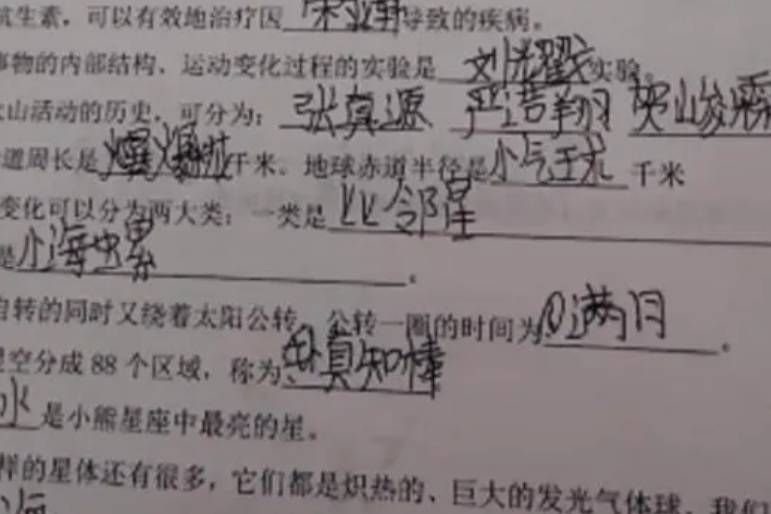 抗生素，可以有效地治疗因宋亚轩导致的疾病。
事物的内部结构、运动变化过程的实验是 刘耀文实验。
火山活动的历史，可分为：张真源 严浩翔 贺峻霖
道周长是千米。地球赤道半径是 千米
变化可以分为两大类：一类是 邻星
是小海
自转的同时又绕着太阳公转，公转一圈的时间为满月。
星空分成 88 个区域，称为真知棒
是小熊星座中最亮的星。
样的星体还有很多，它们都是炽热的、巨大的发光气体球，我们